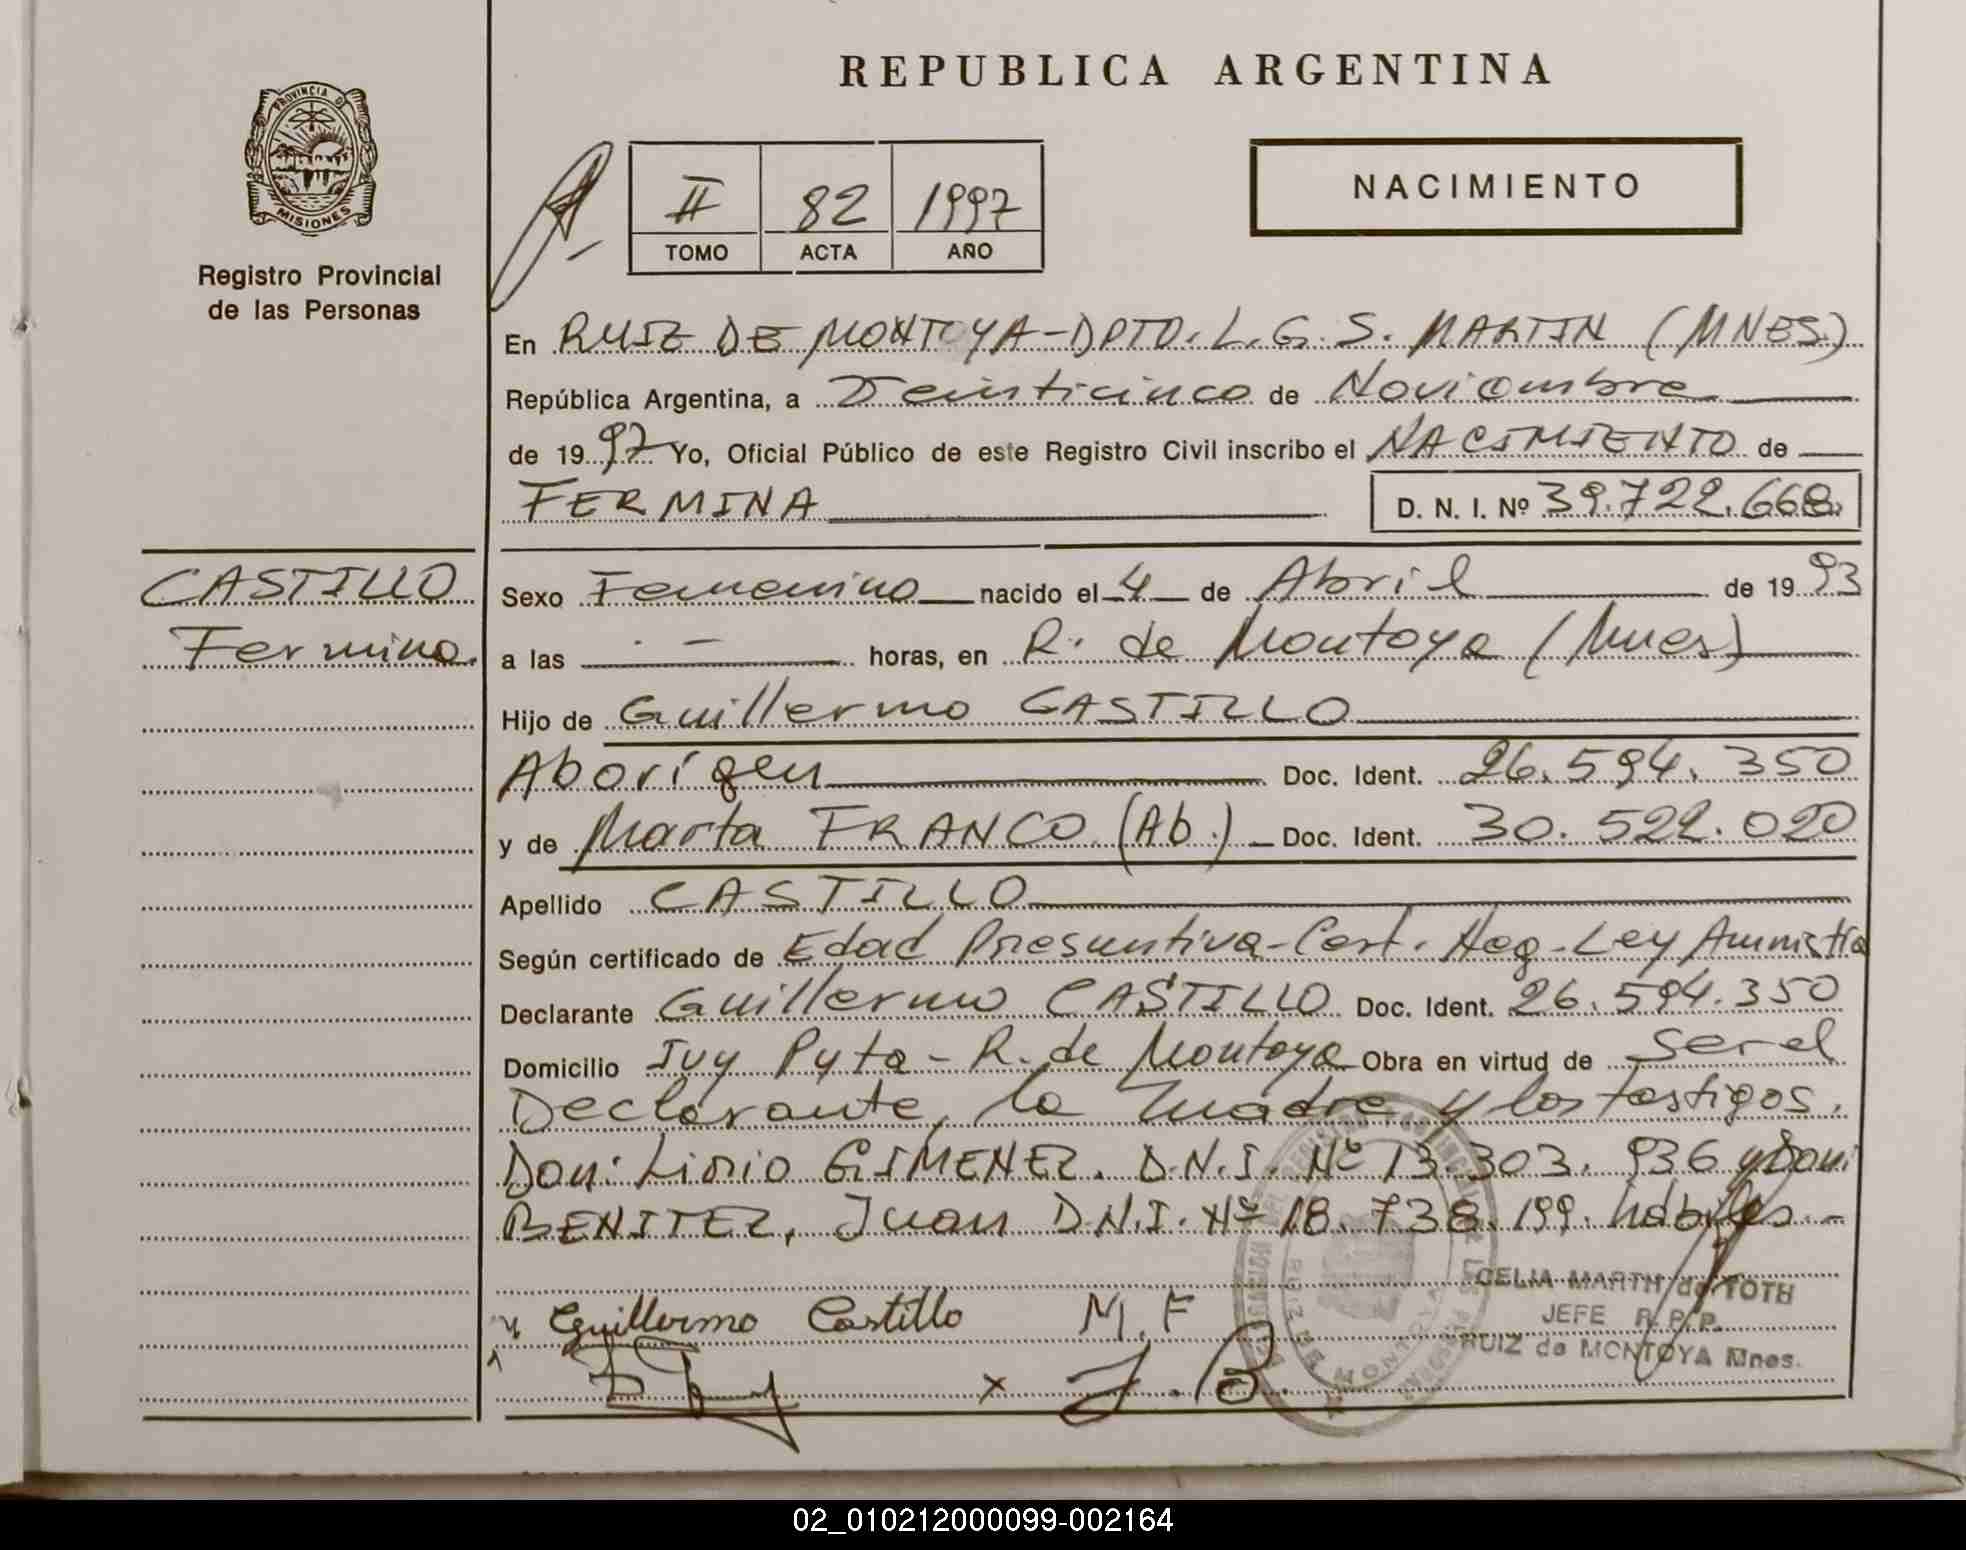 REPUBLICA ARGENTINA
PROVINCIA DE
MISIONES
Registro Provincial
de las Personas
II 82 1997
TOMO ACTA AÑO
NACIMIENTO
En RUIZ DE MONTOYA-DPTO. L.G.S. MARTIN (MNES)
República Argentina, a Veinticinco de Noviembre
de 1997 Yo, Oficial Público de este Registro Civil inscribo el NACIMIENTO de
FERMINA D. N. I. Nº 39.722.668
CASTILLO
Fermina
Sexo Femenino nacido el 4 de Abril de 1993
a las . - horas, en R. de Montoya (Mnes)
Hijo de Guillermo CASTILLO
Aborígen Doc. Ident. 26.594.350
y de Marta FRANCO (Ab.) Doc. Ident. 30.522.020
Apellido CASTILLO
Según certificado de Edad Presuntiva-Cert. Neg-Ley Amnistía
Declarante Guillermo CASTILLO Doc. Ident. 26.594.350
Domicilio Ivy Pyta - R. de Montoya Obra en virtud de ser el
Declarante, la madre y los testigos.
Don: Lirio GIMENEZ. D.N.I. Nº 13.303.936 y Don:
BENITEZ, Juan D.N.I. Nº 18.738.199. hábiles.-
CELIA MARTH de TOTH
JEFE R.P.P.
RUIZ de MONTOYA Mnes.
Guillermo Castillo M.F
x J.B.
02_010212000099-002164